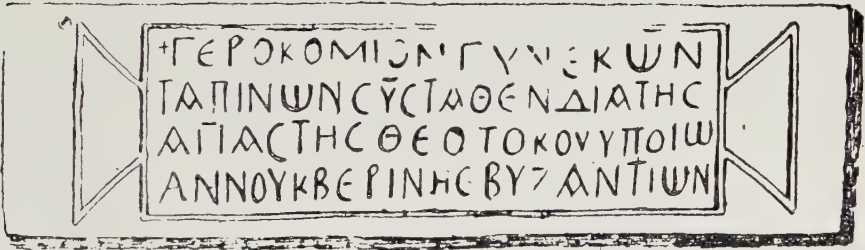 +ΓΕΡΟΚΟΜΙΟΝΓΥΝΕΚѠΝ
ΤΑΠΙΝѠΝCΥCΤΑΘΕΝΔΙΑΤΗC
ΑΓΙΑCΤΗCΘΕΟΤΟΚΟΥΥΠΟΙѠ
ΑΝΝΟΥΚΒΕΡΙΝΗCΒΥΖΑΝΤΙѠΝ